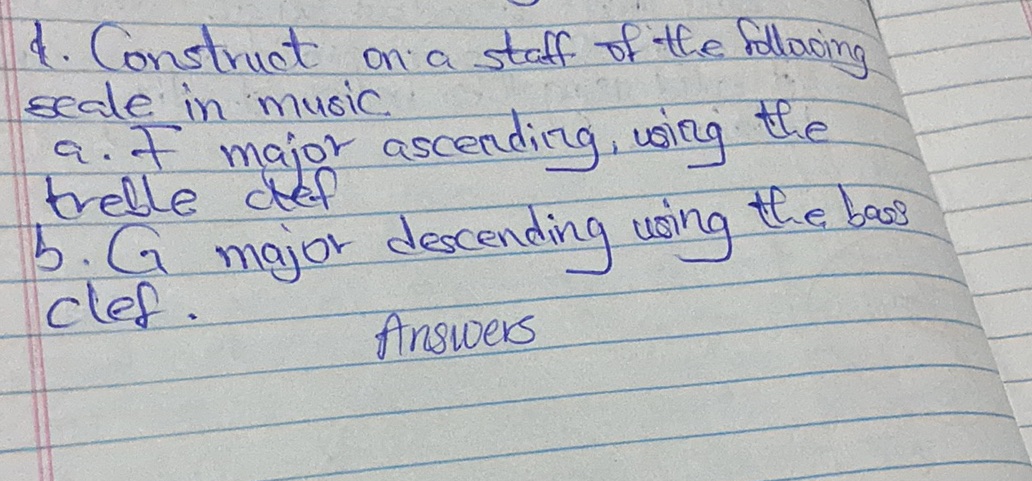 1. Construct on a staff of the following
scale in music
a. F major ascending, using the
treble clef
b. G major descending using the bass
clef.
Answers